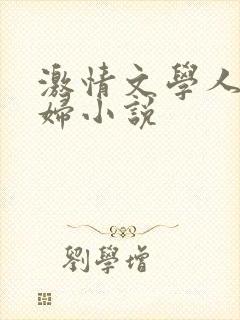 激情文學人
婦小説
劉學增